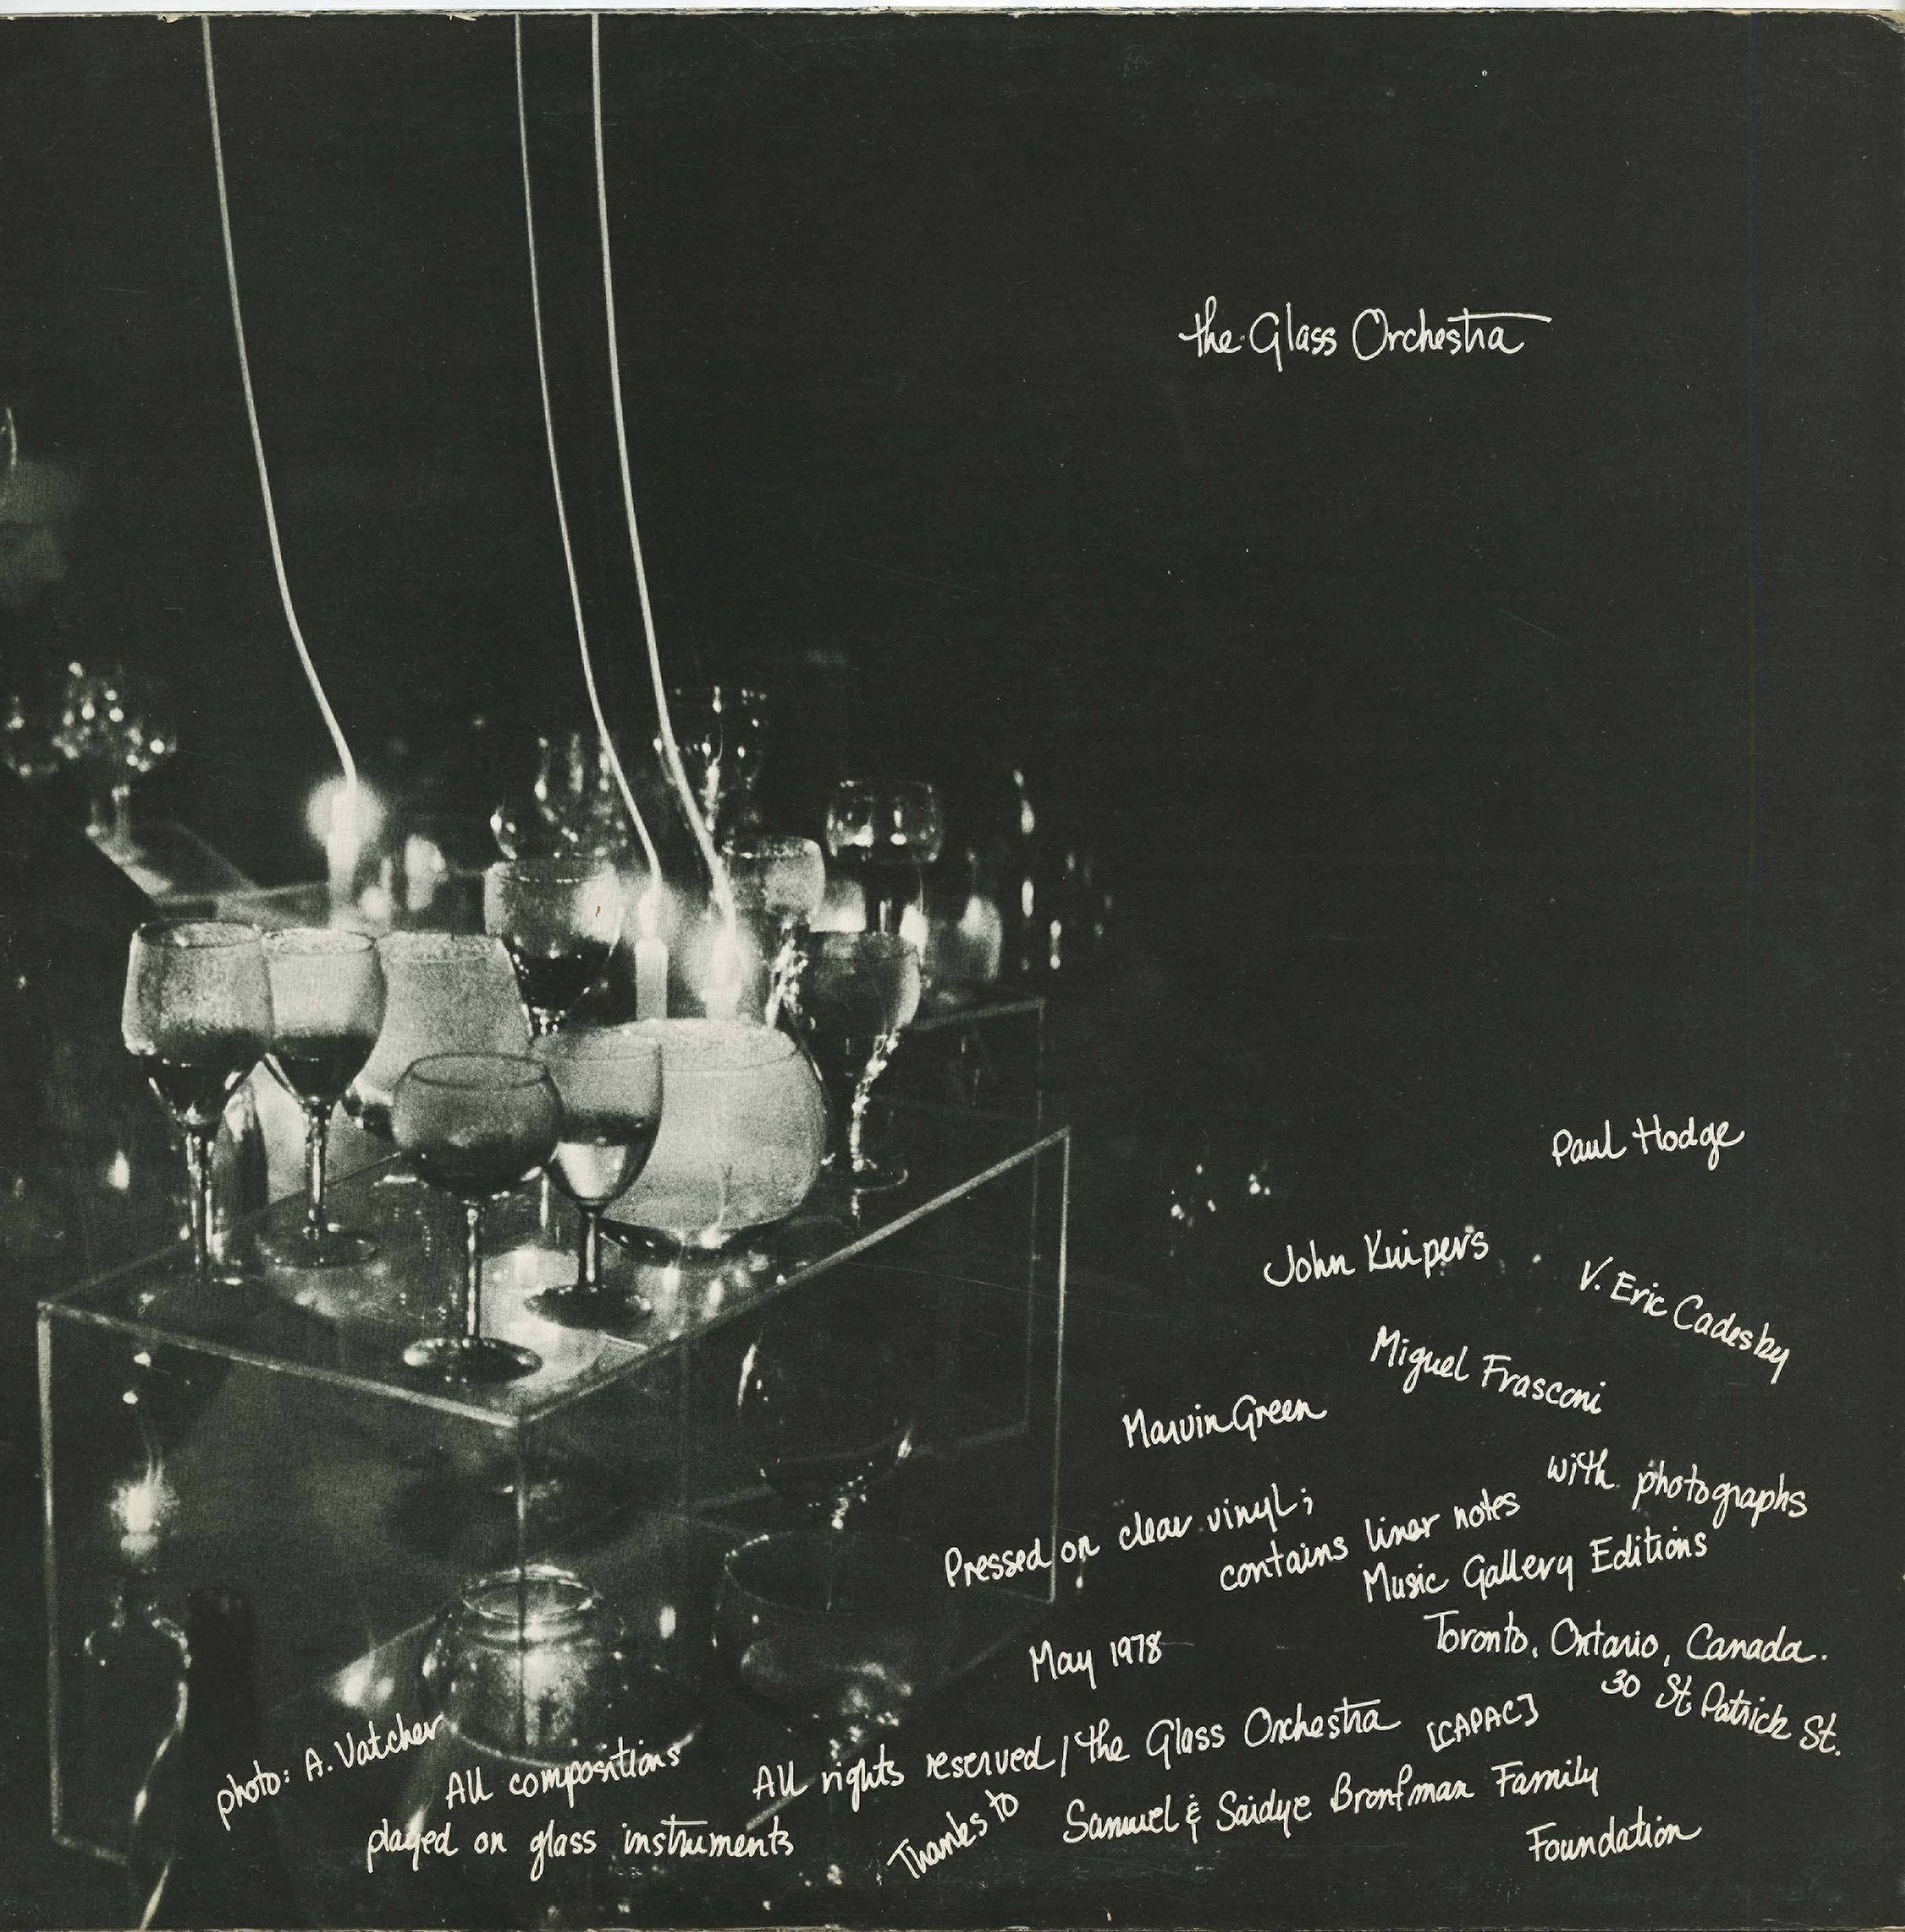 the Glass Orchestra
Paul Hodge
John Kuipers
V. Eric Cadesby
Miguel Frasconi
Marvin Green
Pressed on clear vinyl;
contains liner notes
with photographs
Music Gallery Editions
Toronto, Ontario, Canada.
30 St. Patrick St.
May 1978
All rights reserved / the Glass Orchestra [CAPAC]
photo: A. Vatcher
All compositions
played on glass instruments
Thanks to
Samuel & Saidye Bronfman Family
Foundation